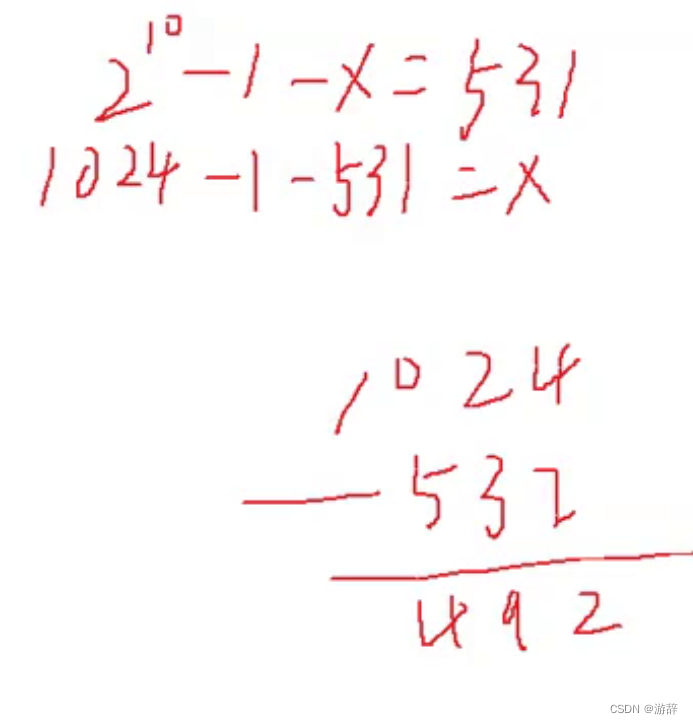 2^10 - 1 - x = 531
1024 - 1 - 531 = x
1024
- 532
492
CSDN @游辞